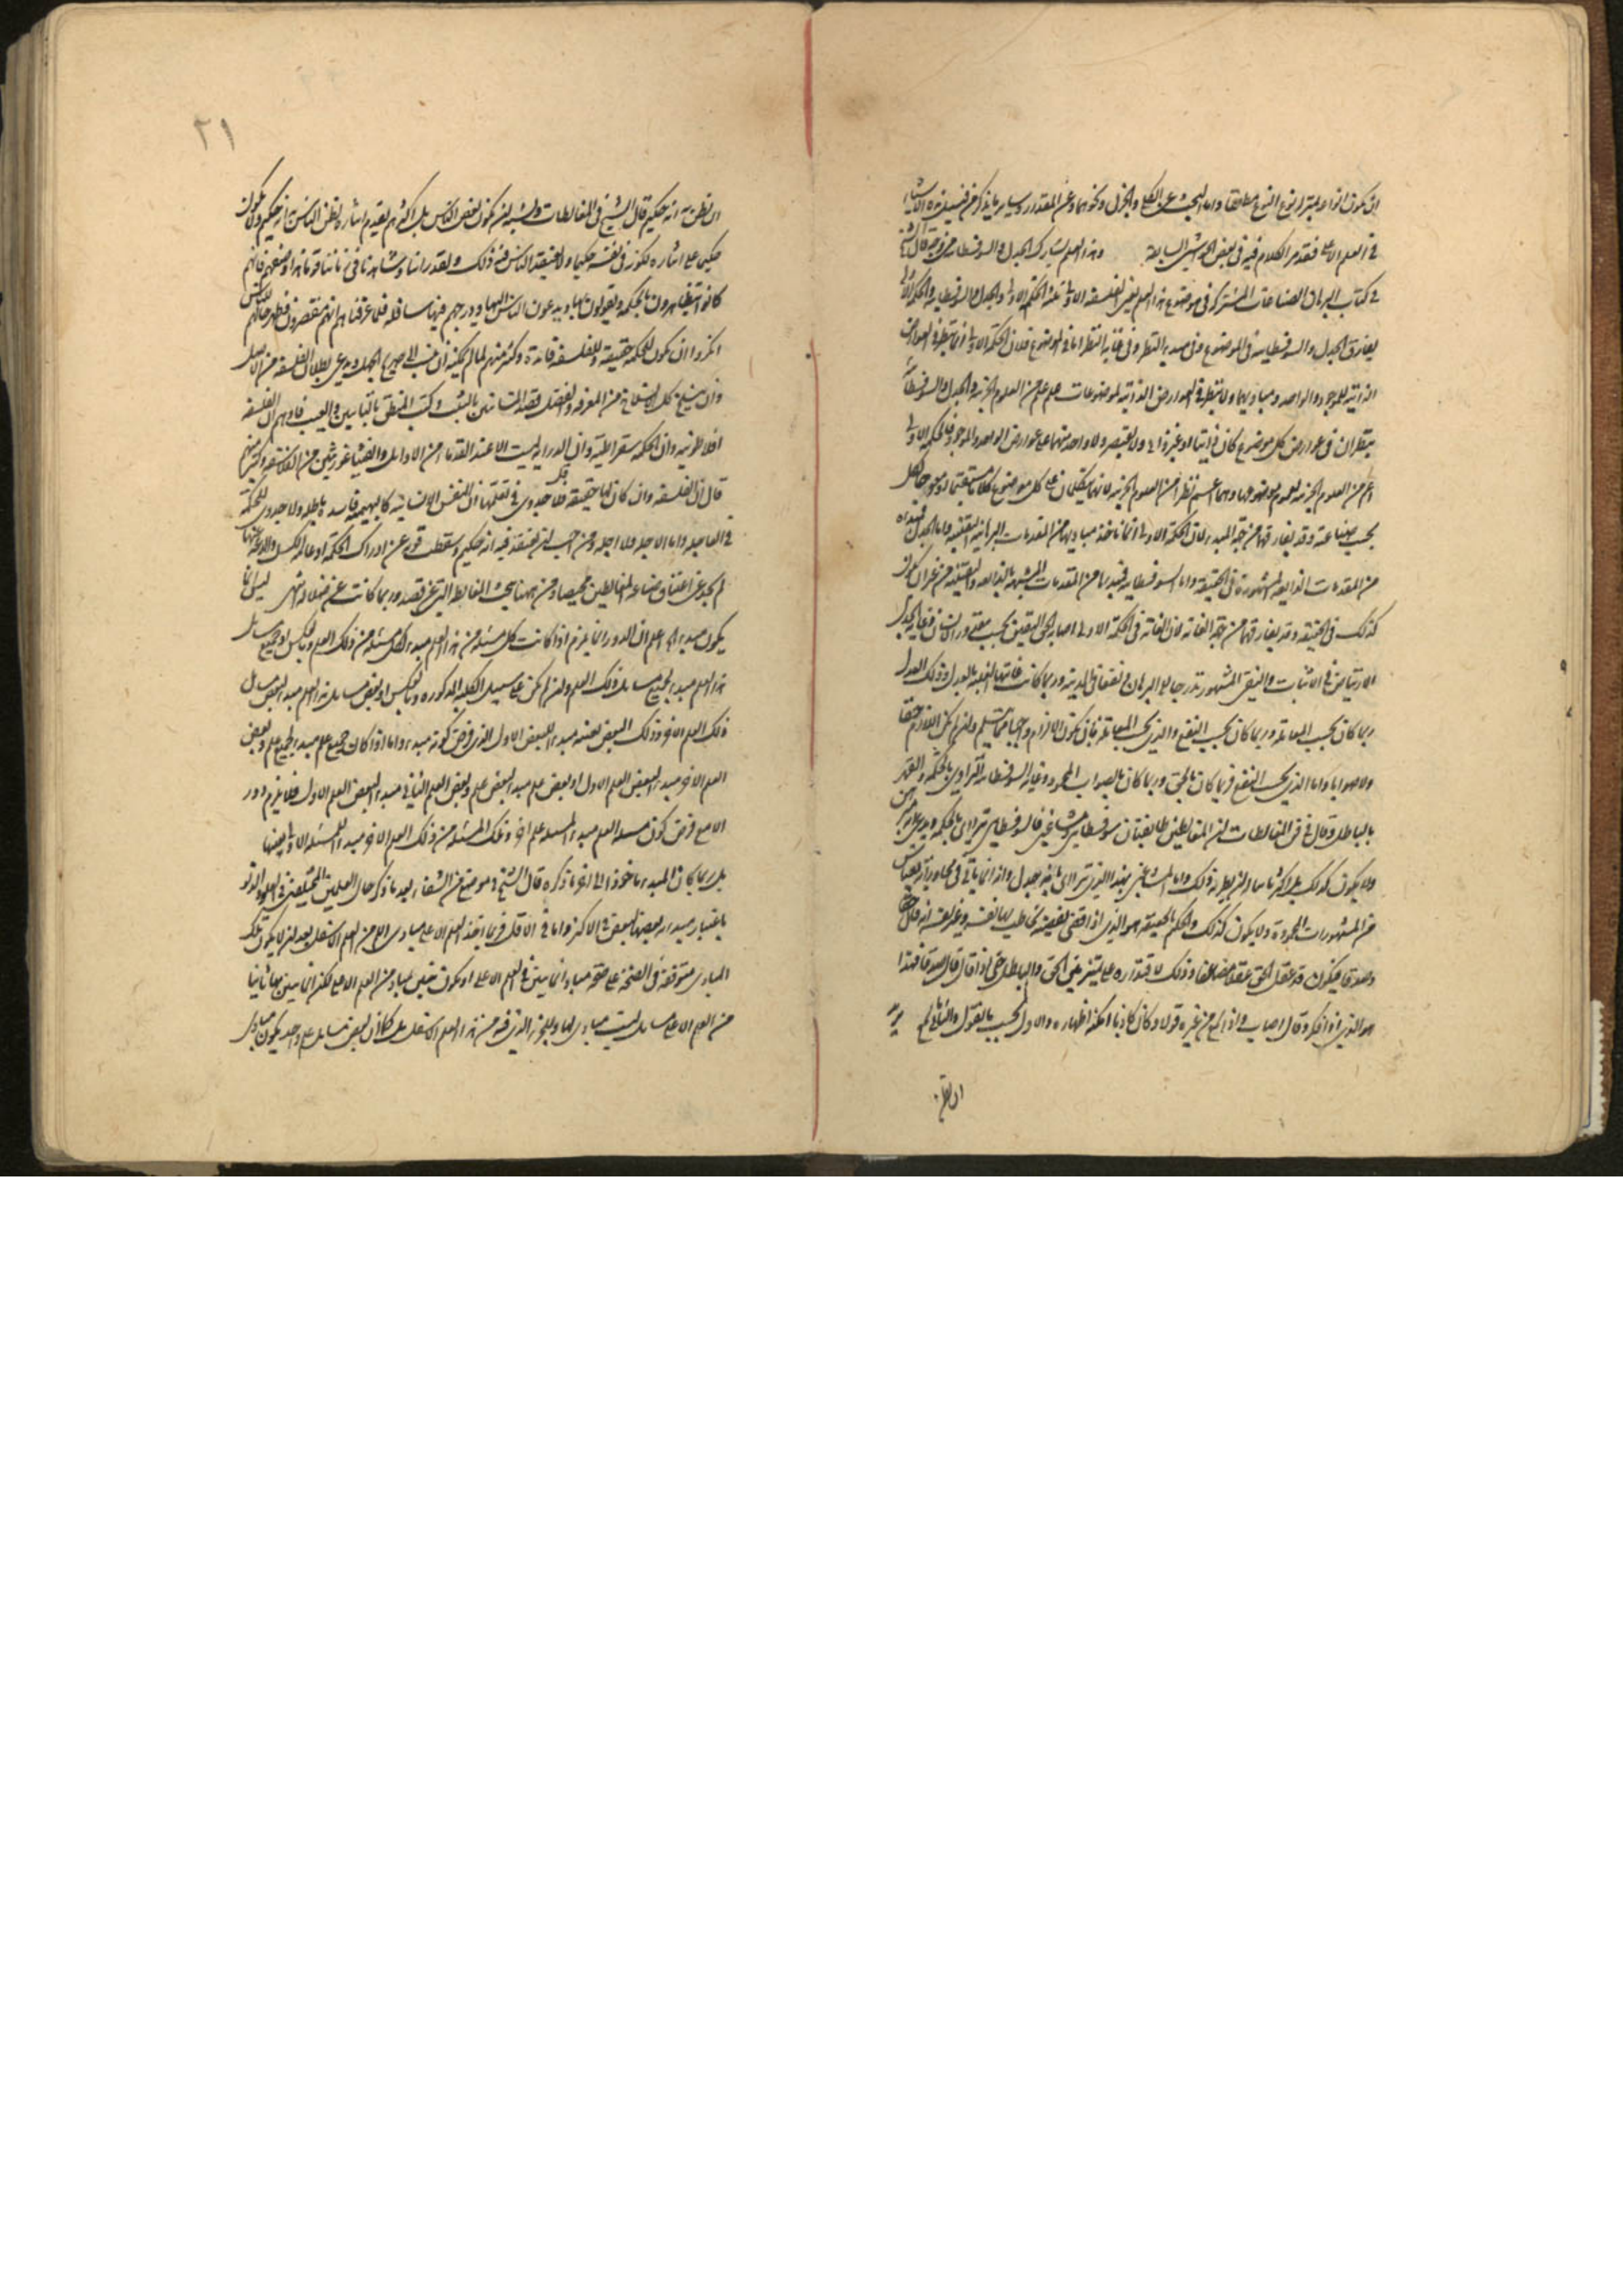 ان يكون انواعه بمنزلة نوع النوع مطلقا واما البحث عن الكلي والجزئي ونحوهما وعن المقدار وسائر ما يذكر من قبيل هذه الاشياء
في العلم الاعلى فقد مر الكلام فيه في بعض الحواشي السابقة وهذا العلم يشارك الجدل والسوفسطائية من وجه قال الشيخ
في كتاب البرهان الصناعات المشتركة في موضوع هذا العلم يعني الفلسفة الاولى ثلثة الحكمة الاولى والجدل والسوفسطائية والحكمة الاولى
يفارق الجدل والسوفسطائية في الموضوع وفي مبدء النظر وفي غاية النظر اما في الموضوع فلان الحكمة الاولى انما ينظر في العوارض
الذاتية للموجود والواحد ومباديهما ولا ينظر في العوارض الذاتية لموضوعات علم علم من العلوم الجزئية والجدل والسوفسطائية
ينظران في عوارض كل موضوع كان ذاتيا او غير ذاتي ولا يقتصر ولا واحد منهما على عوارض الواحد والموجود فالحكمة الاولى
اعم من العلوم الجزئية لعموم موضوعها وهما اعم نظرا من العلوم الجزئية لانهما يتكلمان على كل موضوع كلاما مستقيما او معوجا لكل
بحسب صناعته وقد يفارقهما من جهة المبدء لان الحكمة الاولى انما تاخذ مباديها من المقدمات البرهانية اليقينية واما الجدل فمبدءه
من المقدمات الذايعة المشهورة في الحقيقة واما السوفسطائية فمبدءها من المقدمات المشبهة بالذايعة او اليقينية من غير ان يكون
كذلك في الحقيقة وقد يفارقهما من جهة الغاية لان الغاية في الحكمة الاولى اصابة الحق اليقين بحسب مقدور الانسان وغاية الجدل
الارتياض في الاثبات والنفي المشهور تدرجا الى البرهان ونفعا في المدينة وربما كانت غايتها الغلبة بالعدل وذلك العدل
ربما كان بحسب المعاملة وربما كان بحسب النفع والذي بحسب المعاملة فان يكون الالزام واجبا مما يتسلم وان لم يكن اللازم حقا
ولا صوابا واما الذي بحسب النفع فربما كان بالحق وربما كان بالصواب المحمود وغاية السوفسطائية الترائي بالحكمة والقهر
بالباطل وقال في فن المغالطات ان المغالطين طايفتان سوفسطائي ومشاغبي فالسوفسطائي يترائى بالحكمة ويدعي انه مبرهن
ولا يكون كذلك بل اكثر ما يناله ان يظن به ذلك واما المشاغبي فهو الذي يترائى بانه جدلي وانه انما ياتي في محاوراته بقياس
من المشهورات المحمودة ولا يكون كذلك والحكيم بالحقيقة هو الذي اذا قضى بقضية يخاطب بها نفسه وغير نفسه انه قال حقا
وصدقا فيكون قد عقل الحق عقلا مضاعفا وذلك لاقتداره على تمييز بين الحق والباطل حتى اذا قال قال صدقا فهذا
هو الذي اذا فكر وقال اصاب واذا سمع من غيره قولا وكان كاذبا امكنه اظهاره والاول له بحسب ما يقول والثاني بحسب ما يسمع
٢١
ان يظن به انه حكيم قال الشيخ في المغالطات ولشبه ان يكون بعض الناس بل اكثرهم يقدم ايثاره لظن الناس به انه حكيم ولا يكون
حكيما على ايثاره لكونه في نفسه حكيما ولا يعتقد الناس فيه ذلك ولقد راينا وشاهدنا في زماننا قوما هذا وصفهم فانهم
كانوا يتظاهرون بالحكمة ويقولون بها ويدعون الناس اليها ودرجتهم فيها سافلة فلما عرفناهم انهم مقصرون فظهر حالهم للناس
انكروا ان يكون للحكمة حقيقة وللفلسفة فائدة وكثير منهم لما لم يمكنه ان ينتسب الى صريح الجهل ويدعي بطلان الفلسفة من الاصل
وان ينسلخ كل الانسلاخ من المعرفة والعقل قصد المشائين بالثلب وكتب المنطق والبانين عليها بالعيب فاوهم ان الفلسفة
افلاطونية وان الحكمة سقراطية وان الدراية ليست الا عند القدماء من الاوايل والفيثاغورثيين من الفلاسفة وكثير منهم
قال ان الفلسفة وان كان لها حقيقة فلا جدوى في تعلمها وان النفس الانسانية كالبهيمية فاسدة باطلة ولا جدوى للحكمة
في العاجلة واما الاجلة فلا اجلة ومن احب ان يعتقد فيه انه حكيم وسقطت قوته عن ادراك الحكمة او عاقه الكسل والدعة عنها
لم يجد عن اعتناق صناعة المغالطين محيصا ومن ههنا يبحث المغالطة التي عن قصد وربما كانت عن ضلالة انتهى ليس انما
يكون مبدء الخ اعلم ان الدور انما يلزم اذا كانت كل مسئلة من هذا العلم مبدء لكل مسئلة من ذلك العلم وبالعكس او جميع مسايل
هذا العلم مبدء لجميع مسايل ذلك العلم وان لم يكن على سبيل الكلية المذكورة وبالعكس او بعض مسايل هذا العلم مبدء لبعض مسايل
ذلك العلم الاخر وذلك البعض بعينه مبدء للبعض الاول الذي فرض كونه مبدء واما اذا كان جميع علم مبدء لجميع علم وبعض
العلم الاخر مبدء لبعض العلم الاول او بعض علم مبدء لبعض علم وبعض العلم الثاني مبدء لبعض العلم الاول فلا يلزم دور
الا مع فرض كون مسئلة العلم مبدء لمسئلة علم اخر وتلك المسئلة من ذلك العلم الاخر مبدء للمسئلة الاولى بعينها
بل ربما كان المبدء ماخوذا الى اخر ما ذكره قال الشيخ في موضع من الشفاء بعد ما ذكر حال العلمين المختلفين في العلو والدنو
باعتبار مبدئية بعضها لبعض في الاكثر واما في الاقل فربما اخذ العلم الاعلى مبادي اللم من العلم الاسفل بعد ان لا يكون تلك
المبادي متوقفة في الصحة على صحة مباد انما يتبين في العلم الاعلى او يكون تبين مباد من العلم الاعلى لكن انما يتبين بها ثانيا
من العلم الاعلى مسايل ليست مبادي لها وللجزء الذي فيه من هذا العلم الاسفل بل كما ان بعض مسايل علم واحد يكون مبادي